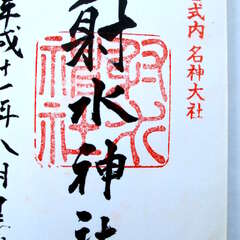 式内 名神大社
射水神社
射水神社
平成十一年八月